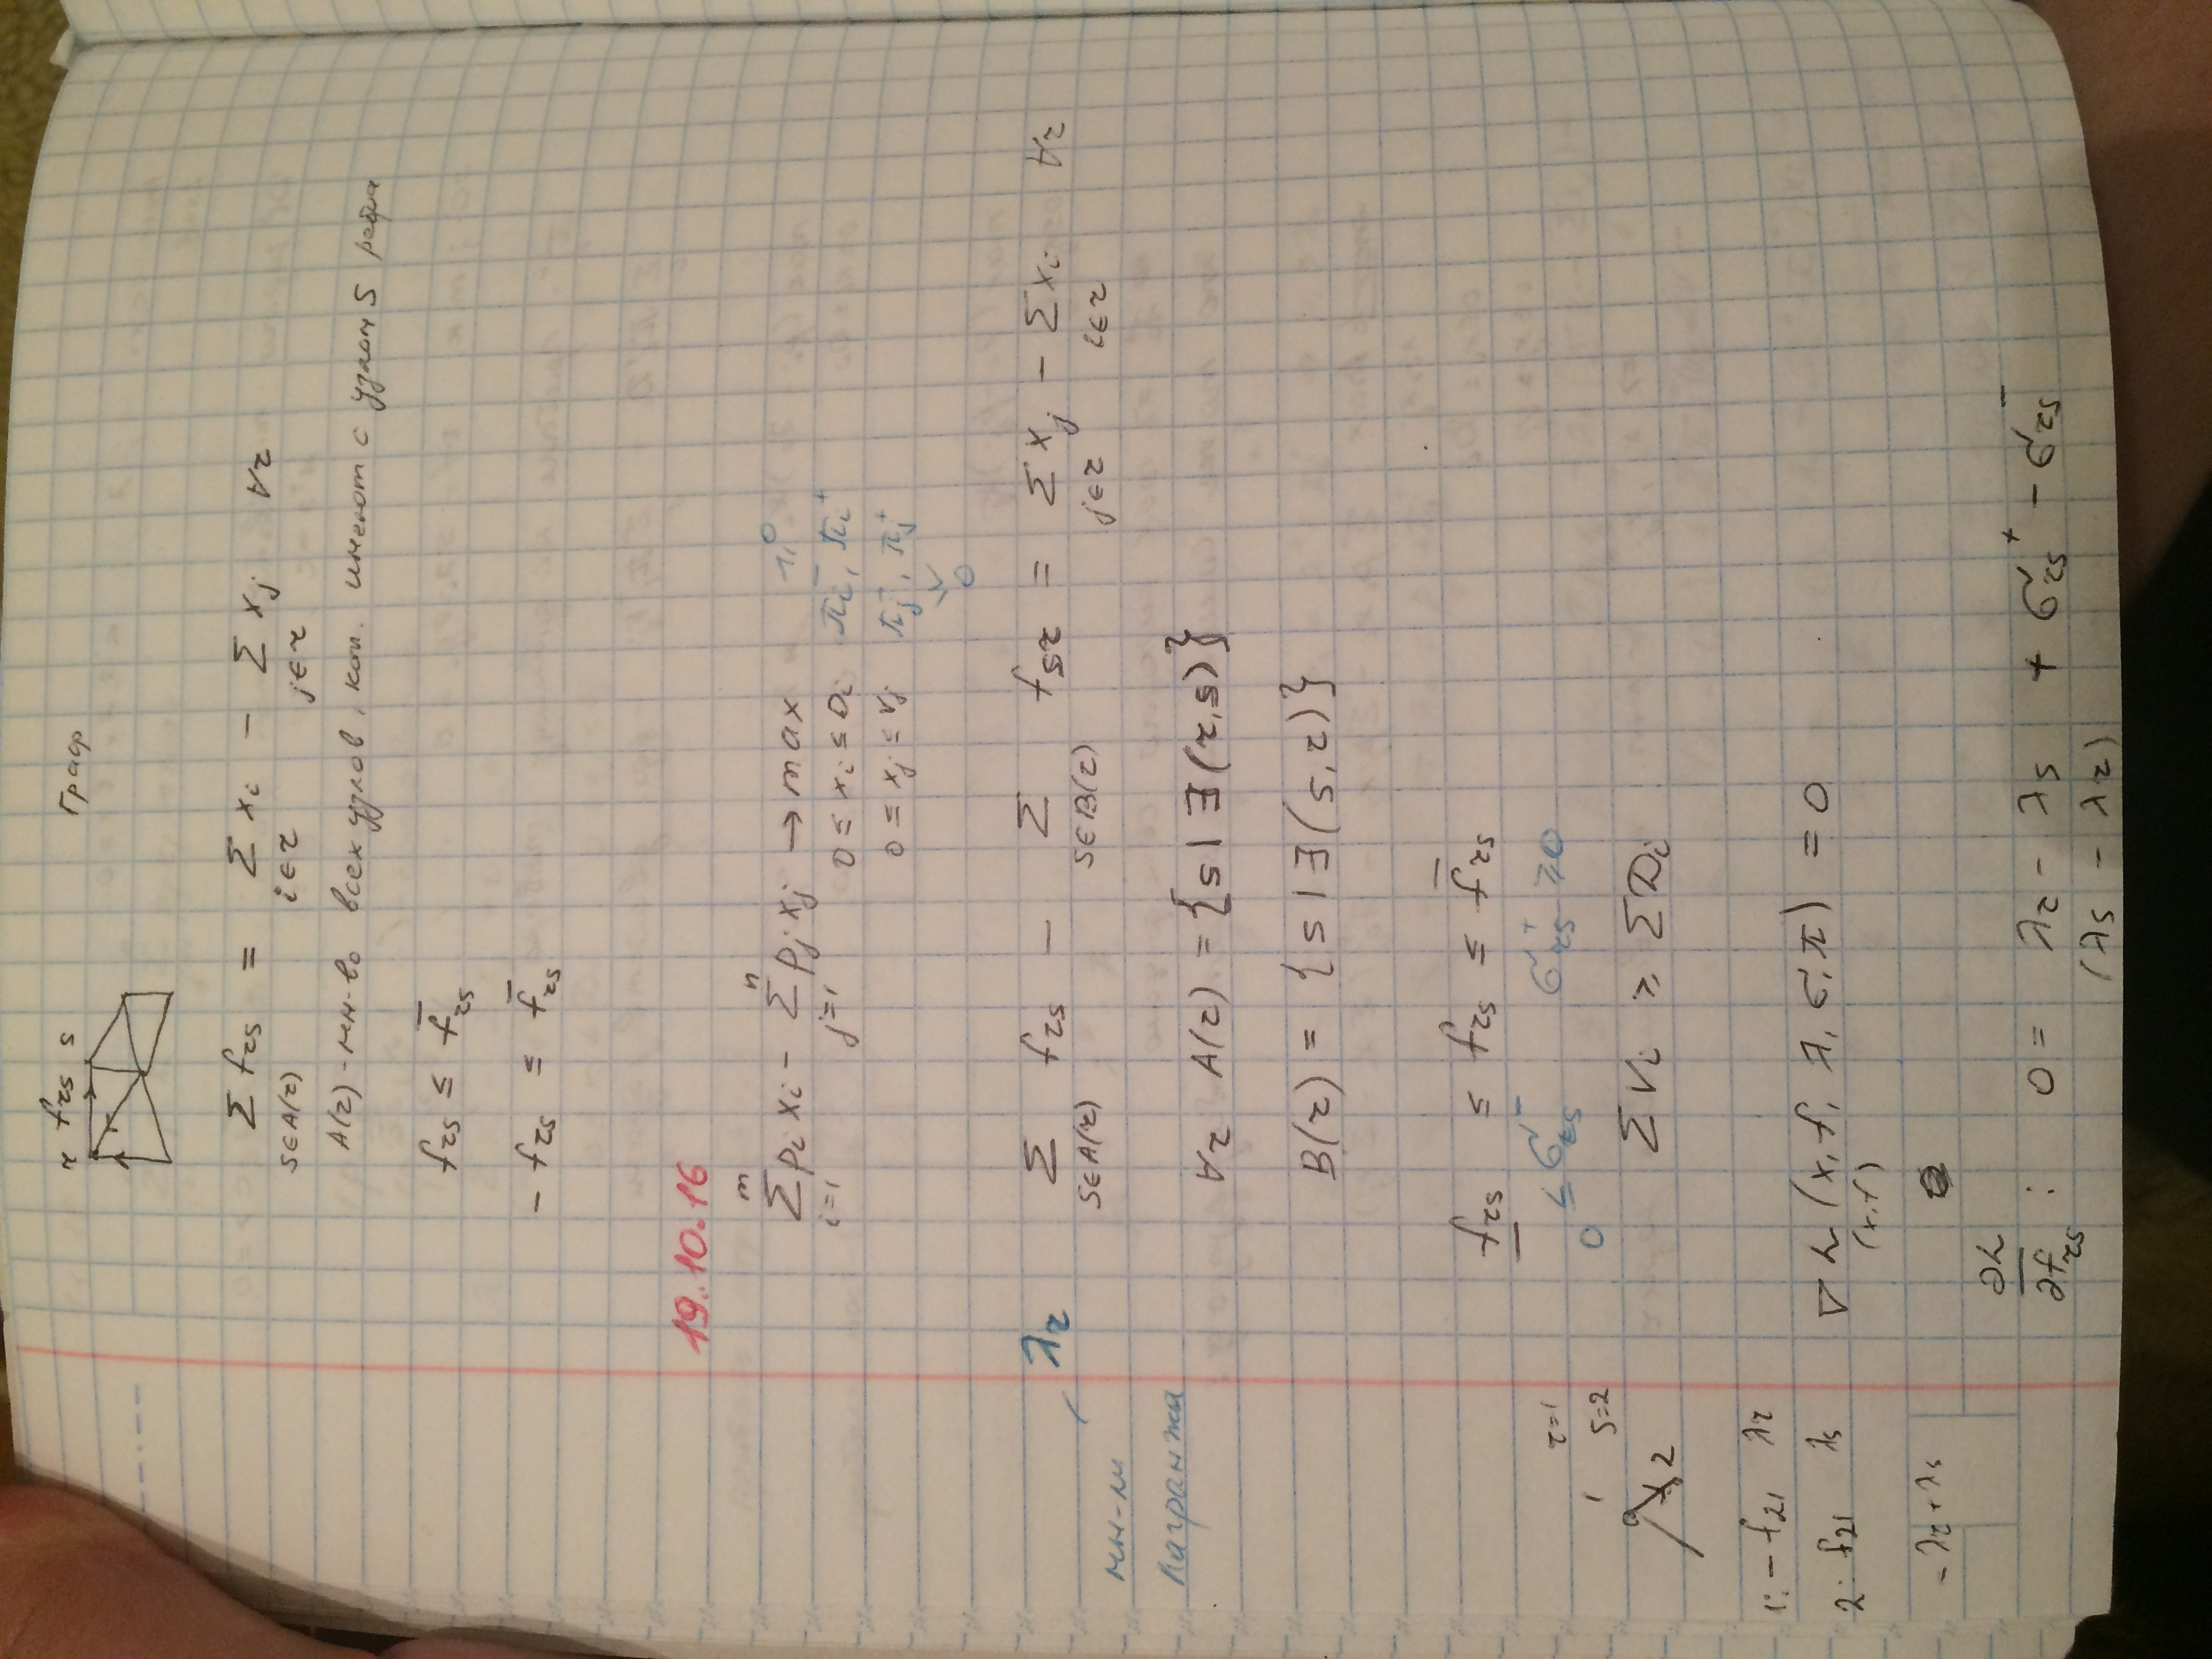 Граф
r f_rs s
Σ_{s∈A(r)} f_rs = Σ_{i∈r} x_i − Σ_{j∈r} x_j ∀r
A(r) - мн-во всех узлов, кот. имеют с узлом s
f_rs ≤ f̄_rs
− f_rs ≤ f̄_rs
19.10.16
Σ_{i=1}^m p_i x_i − Σ_{j=1}^n p_j x_j → max
0 ≤ x_i ≤ D_i π_i^-, π_i^+
0 ≤ x_j ≤ V_j π_j^-, π_j^+
0
λ_r Σ_{s∈A(r)} f_rs − Σ_{s∈B(r)} f_sr = Σ_{j∈r} x_j − Σ_{i∈r} x_i ∀r
мн-ли
Лагранжа
∀r A(r) = {s | ∃(r,s)}
B(r) = {s | ∃(s,r)}
f̲_rs ≤ f_rs ≤ f̄_rs
0 ≤ σ_rs^- σ_rs^+ ≥ 0
r=1
s=2
1
2
Σ V_i ≥ Σ D_i
1: − f_21 λ_r
2: f_21 λ_s
− λ_r + λ_s
∇_{(x,f)} L (x, f, λ, σ, π) = 0
∂L/∂f_rs : 0 = λ_r − λ_s + σ_rs^+ − σ_rs^-
(λ_s − λ_r)